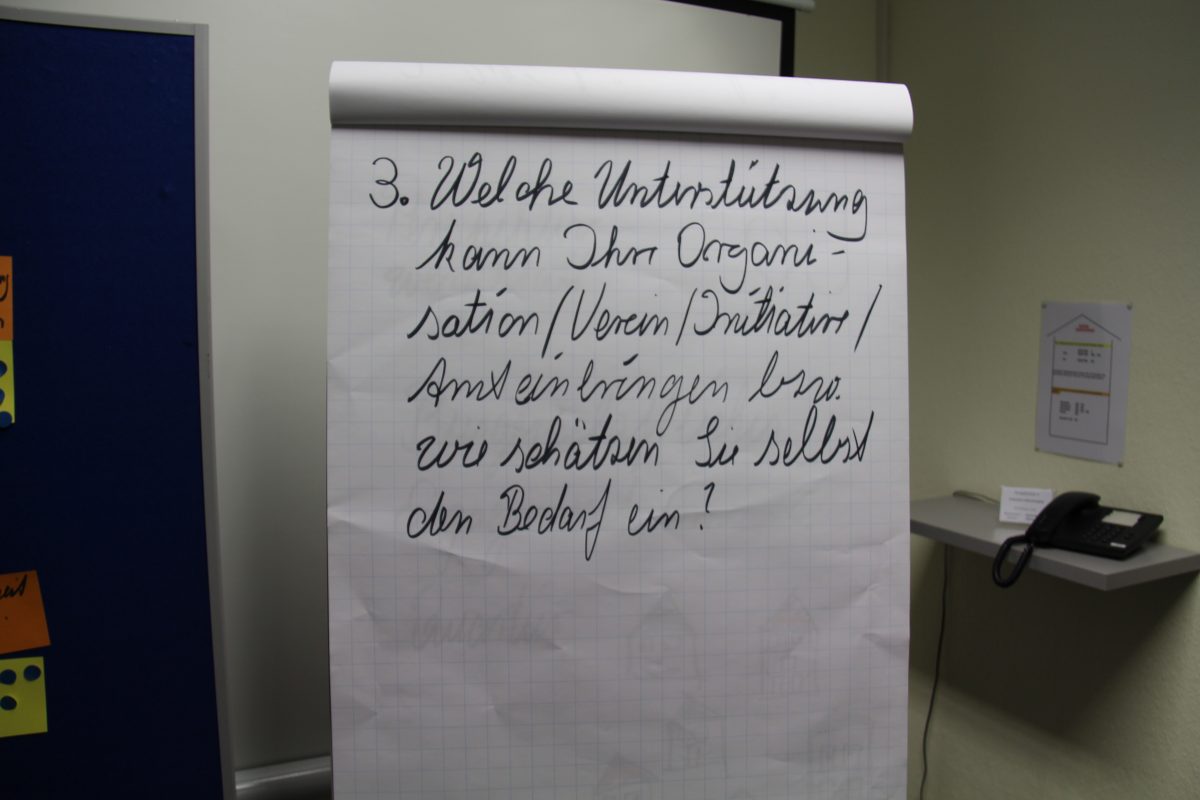 3. Welche Unterstützung
kann Ihre Organi-
sation/Verein/Initiative/
Amt einbringen bzw.
wie schätzen Sie selbst
den Bedarf ein?